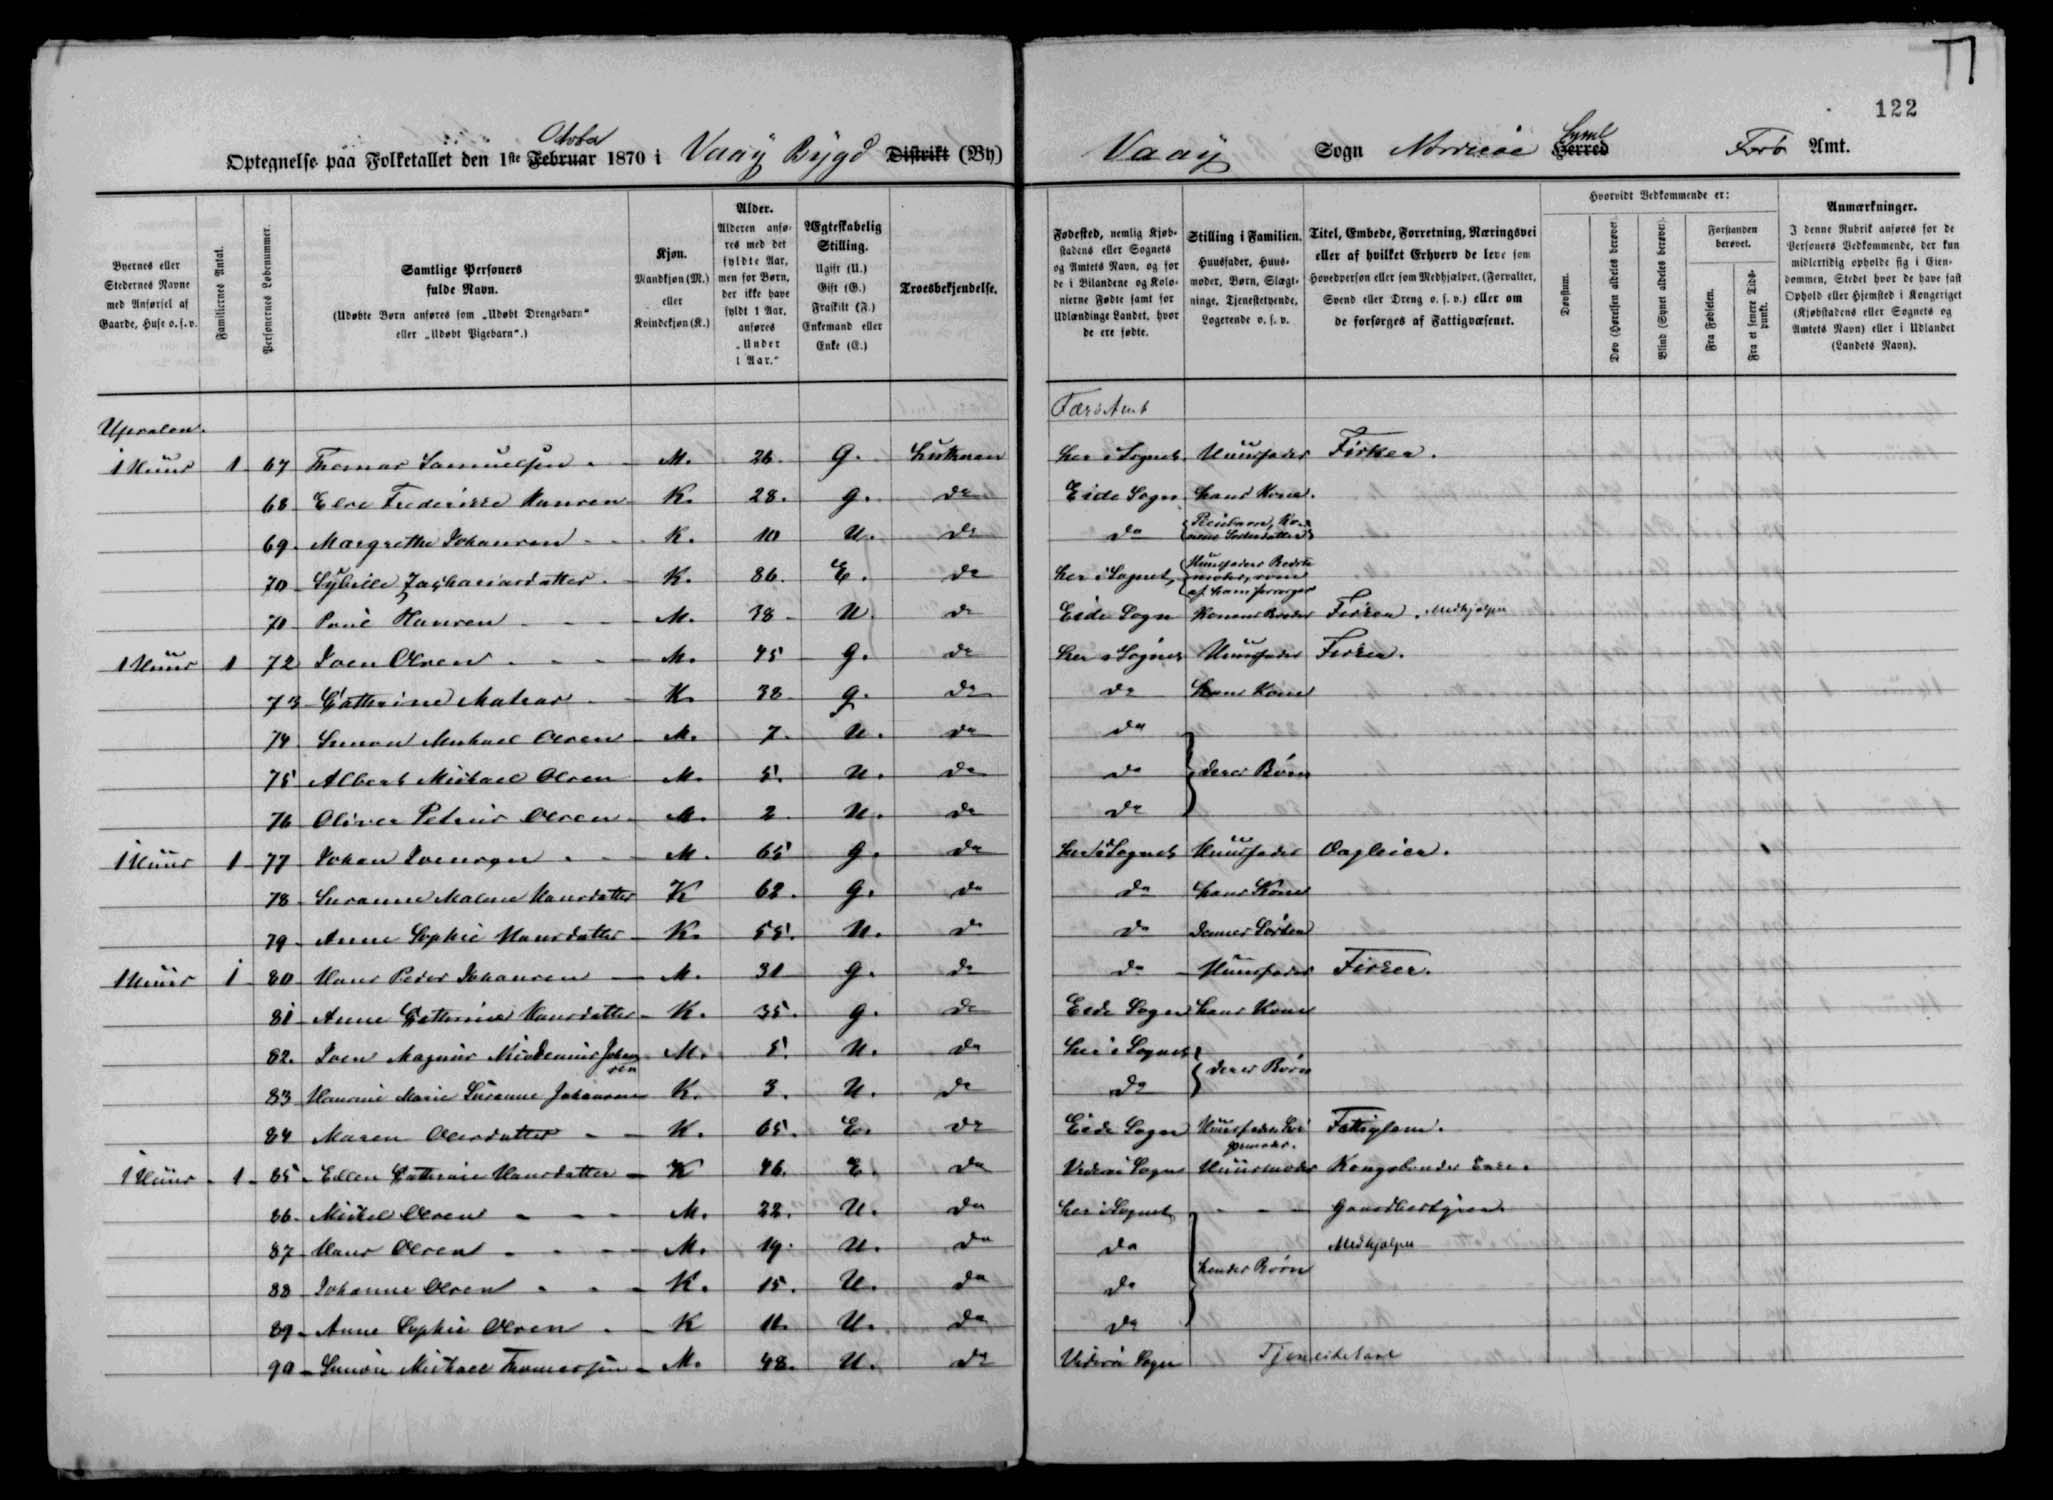 122
October
Optegnelse paa Folketallet den 1ste Februar 1870 i Vaaÿ Bÿgd Distrikt (By)
Syssel
Vaaÿ Sogn Norderøe Herred Færø Amt.
Byernes eller Stedernes Navne med Anførsel af Gaarde, Huse o. s. v.
Familiernes Antal.
Personernes Løbenummer.
Samtlige Personers fulde Navn.
(Udøbte Børn anføres som „Udøbt Drengebarn“ eller „Udøbt Pigebarn“.)
Kjøn.
Mandkjøn (M.) eller Kvindekjøn (K.)
Alder.
Alderen anføres med det fyldte Aar, men for Børn, der ikke have fyldt 1 Aar, anføres „Under 1 Aar.“
Ægteskabelig Stilling.
Ugift (U.) Gift (G.) Fraskilt (F.) Enkemand eller Enke (E.)
Troesbekjendelse.
Fødested, nemlig Kjøbstadens eller Sognets og Amtets Navn, og for de i Bilandene og Kolonierne Fødte samt for Udlændinge Landet, hvor de ere fødte.
Stilling i Familien.
Huusfader, Huusmoder, Børn, Slægtninge, Tjenestetyende, Logerende o. s. v.
Titel, Embede, Forretning, Næringsvei eller af hvilket Erhverv de leve som Hovedperson eller som Medhjælper, (Forvalter, Svend eller Dreng o. s. v.) eller om de forsørges af Fattigvæsenet.
Hvorvidt Vedkommende er:
Døvstum.
Døv (Hørelsen aldeles berøvet).
Blind (Synet aldeles berøvet).
Forstanden berøvet.
Fra Fødselen.
Fra et senere Tidspunkt.
Anmærkninger.
I denne Rubrik anføres for de Personers Vedkommende, der kun midlertidig opholde sig i Eiendommen, Stedet hvor de have fast Ophold eller Hjemsted i Kongeriget (Kjøbstadens eller Sognets og Amtets Navn) eller i Udlandet (Landets Navn).
Færø Amt
Upsalen.
1 Huus 1 67 Thomas Samuelsen M. 26. G. Luthersen her i Sognet Huusfader Fisker.
68 Else Frederikke Hansen K. 28. G. do Eide Sogn hans Kone.
69. Margrethe Johansen K. 10 U. do do Pleiebarn, Konens Søsterdatter
70 Sÿbille Zachariasdatter K. 86. E. do her i Sognet, Huusfaders Bedstemoder, som af ham forsørges
70 Poul Hansen M. 38 U. do Eide Sogn Konens Broder Fisker. Medhjælper
1 Huus 1 72 Joen Olsen M. 45 G. do her i Sognet Huusfader Fisker.
73 Cathrine Matras K. 38 G. do do hans Kone
74. Simon Michael Olsen M. 7. U. do do
75 Albert Michael Olsen M. 5. U. do do deres Børn
76 Oliver Petrus Olsen M. 2 U. do do
1 Huus 1 77 Johan Joensen M. 65 G. do her i Sognet Huusfader Dagleier.
78 Susanne Malene Hansdatter K 62. G. do do hans Kone
79. Anne Sophie Hansdatter K. 55. U. do do Dennes Søster
1 Huus 1 80 Hans Peder Johansen M. 31 G. do do Huusfader Fisker.
81 Anne Cathrine Hansdatter K. 35. G. do Eide Sogn hans Kone
82. Joen Magnus Nicodemus Johansen M. 5. U. do her i Sognet
83 Hansine Marie Susanne Johansen K. 3. U. do do deres Børn
84 Maren Olesdatter K. 65. E. do Eide Sogn Huusfaders Svigermoder. Fattiglem.
1 Huus 1 85. Ellen Cathrine Hansdatter K 46. E. do Viderøe Sogn Huusmoder Kongsbonder Enke.
86. Mickel Olsen M. 22. U. do her i Sognet Gaardbestyrer.
87 Hans Olsen M. 19. U. do do Medhjælper
88 Johanne Olsen K. 15. U. do do hendes Børn
89. Anne Sophie Olsen K 11. U. do do
90 Simon Michael Thomassen M. 48. U. do Viderøe Sogn Tjenestekarl